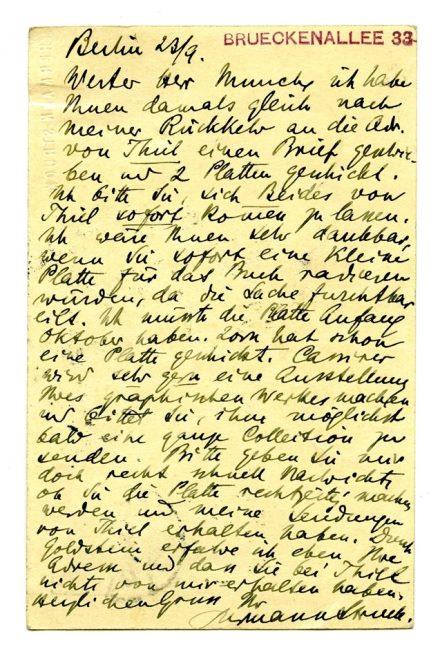 Berlin 23/9. BRUECKENALLEE 33
Werter Herr Munch, ich habe
Ihnen damals gleich nach
meiner Rückkehr an die Adr.
von Thiel einen Brief geschrie-
ben und 2 Platten geschickt.
Ich bitte Sie, sich Beides von
Thiel sofort kommen zu lassen.
Ich wäre Ihnen sehr dankbar,
wenn Sie sofort eine kleine
Platte für das Buch radieren
würden, da die Sache furchtbar
eilt. Ich müsste die Platte Anfang
Oktober haben. Zorn hat schon
eine Platte geschickt. Cassirer
wird sehr gern eine Ausstellung
Ihres graphischen Werkes machen
und bittet Sie, ihm möglichst
bald eine ganze Collection zu
senden. Bitte geben Sie mir
doch recht schnell Nachricht,
ob Sie die Platte rechtzeitig machen
werden und meine Sendungen
von Thiel erhalten haben. Durch
Goldstein erfahre ich eben Ihre
Adresse und dass Sie bei Thiel
nichts von mir erhalten haben.
Herzlichen Gruss Ihr
Hermann Struck.